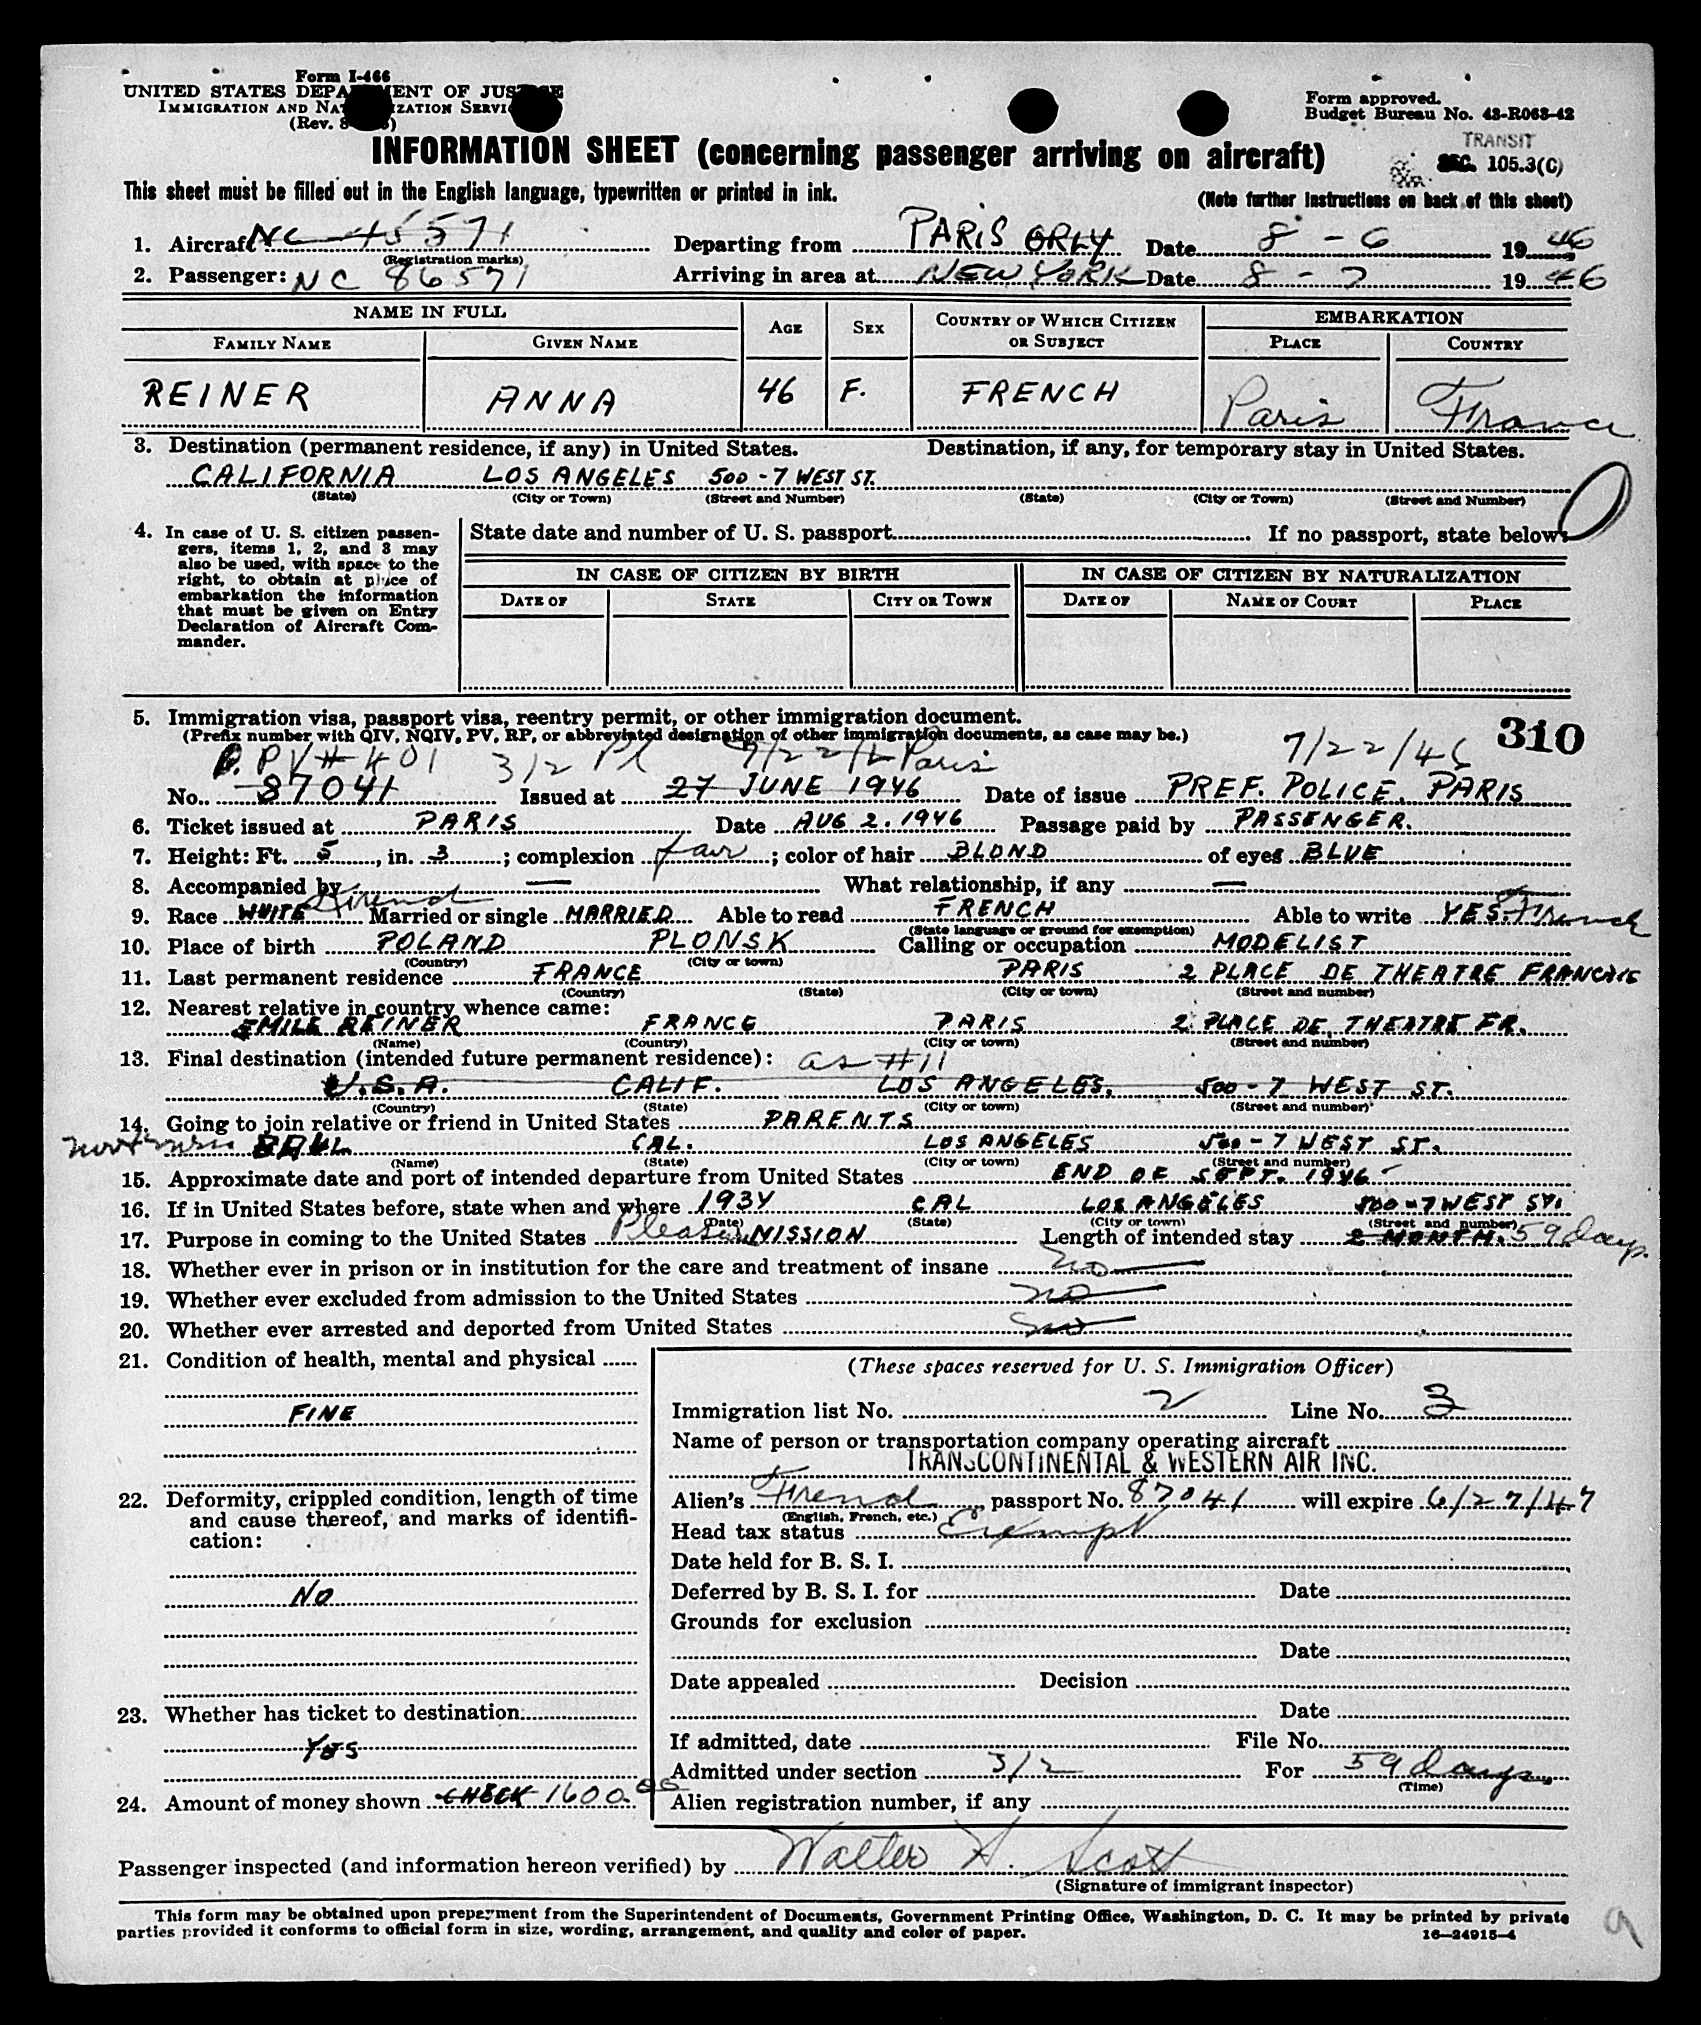 Form I-466
UNITED STATES DEPARTMENT OF JUSTICE
IMMIGRATION AND NATURALIZATION SERVICE
(Rev. 8
Form approved.
Budget Bureau No. 43-R063-42
TRANSIT
SEC. 105.3(C)
INFORMATION SHEET (concerning passenger arriving on aircraft)
This sheet must be filled out in the English language, typewritten or printed in ink.
(Note further instructions on back of this sheet)
1. Aircraft NC 45571 Departing from PARIS ORLY Date 8 - 6 1946
(Registration marks)
2. Passenger: NC 86571 Arriving in area at NEW YORK Date 8 - 7 1946
NAME IN FULL AGE SEX COUNTRY OF WHICH CITIZEN OR SUBJECT EMBARKATION
FAMILY NAME GIVEN NAME PLACE COUNTRY
REINER ANNA 46 F. FRENCH Paris France
3. Destination (permanent residence, if any) in United States. Destination, if any, for temporary stay in United States.
CALIFORNIA LOS ANGELES 500 - 7 WEST ST.
(State) (City or Town) (Street and Number) (State) (City or Town) (Street and Number)
4. In case of U. S. citizen passen-
gers, items 1, 2, and 3 may
also be used, with space to the
right, to obtain at place of
embarkation the information
that must be given on Entry
Declaration of Aircraft Com-
mander.
State date and number of U. S. passport If no passport, state below:
IN CASE OF CITIZEN BY BIRTH IN CASE OF CITIZEN BY NATURALIZATION
DATE OF STATE CITY OR TOWN DATE OF NAME OF COURT PLACE
5. Immigration visa, passport visa, reentry permit, or other immigration document.
310
(Prefix number with QIV, NQIV, PV, RP, or abbreviated designation of other immigration documents, as case may be.)
PV # 401 3/2 Pl 7/22/46 Paris 7/22/46
No. 87041 Issued at 27 JUNE 1946 Date of issue PREF. POLICE. PARIS
6. Ticket issued at PARIS Date AUG 2. 1946 Passage paid by PASSENGER.
7. Height: Ft. 5, in. 3; complexion fair; color of hair BLOND of eyes BLUE
8. Accompanied by — What relationship, if any —
9. Race WHITE French Married or single MARRIED Able to read FRENCH Able to write YES. French
(State language or ground for exemption)
10. Place of birth POLAND PLONSK Calling or occupation MODELIST
(Country) (City or town)
11. Last permanent residence FRANCE PARIS 2 PLACE DE THEATRE FRANCAIS
(Country) (State) (City or town) (Street and number)
12. Nearest relative in country whence came:
EMILE REINER FRANCE PARIS 2 PLACE DE THEATRE FR.
(Name) (Country) (City or town) (Street and number)
13. Final destination (intended future permanent residence): as #11
U.S.A. CALIF. LOS ANGELES. 500 - 7 WEST ST.
(Country) (State) (City or town) (Street and number)
14. Going to join relative or friend in United States PARENTS
CAL. LOS ANGELES 500 - 7 WEST ST.
(Name) (State) (City or town) (Street and number)
15. Approximate date and port of intended departure from United States END DE SEPT. 1946
16. If in United States before, state when and where 1934 CAL LOS ANGELES 500 - 7 WEST ST.
(Date) (State) (City or town) (Street and number)
17. Purpose in coming to the United States Pleasure MISSION Length of intended stay 2 MONTH. 59 days.
18. Whether ever in prison or in institution for the care and treatment of insane no
19. Whether ever excluded from admission to the United States no
20. Whether ever arrested and deported from United States no
21. Condition of health, mental and physical
FINE
22. Deformity, crippled condition, length of time
and cause thereof, and marks of identifi-
cation:
NO
23. Whether has ticket to destination
YES
24. Amount of money shown CHECK 1600.00
(These spaces reserved for U. S. Immigration Officer)
Immigration list No. 2 Line No. 3
Name of person or transportation company operating aircraft
TRANSCONTINENTAL & WESTERN AIR INC.
Alien's French passport No. 87041 will expire 6/27/47
(English, French, etc.)
Head tax status Exempt
Date held for B. S. I.
Deferred by B. S. I. for Date
Grounds for exclusion
Date
Date appealed Decision
Date
If admitted, date File No.
Admitted under section 3/2 For 59 days
(Time)
Alien registration number, if any
Passenger inspected (and information hereon verified) by Walter H. Scott
(Signature of immigrant inspector)
This form may be obtained upon prepayment from the Superintendent of Documents, Government Printing Office, Washington, D. C. It may be printed by private
parties provided it conforms to official form in size, wording, arrangement, and quality and color of paper.
16—24915-4
9